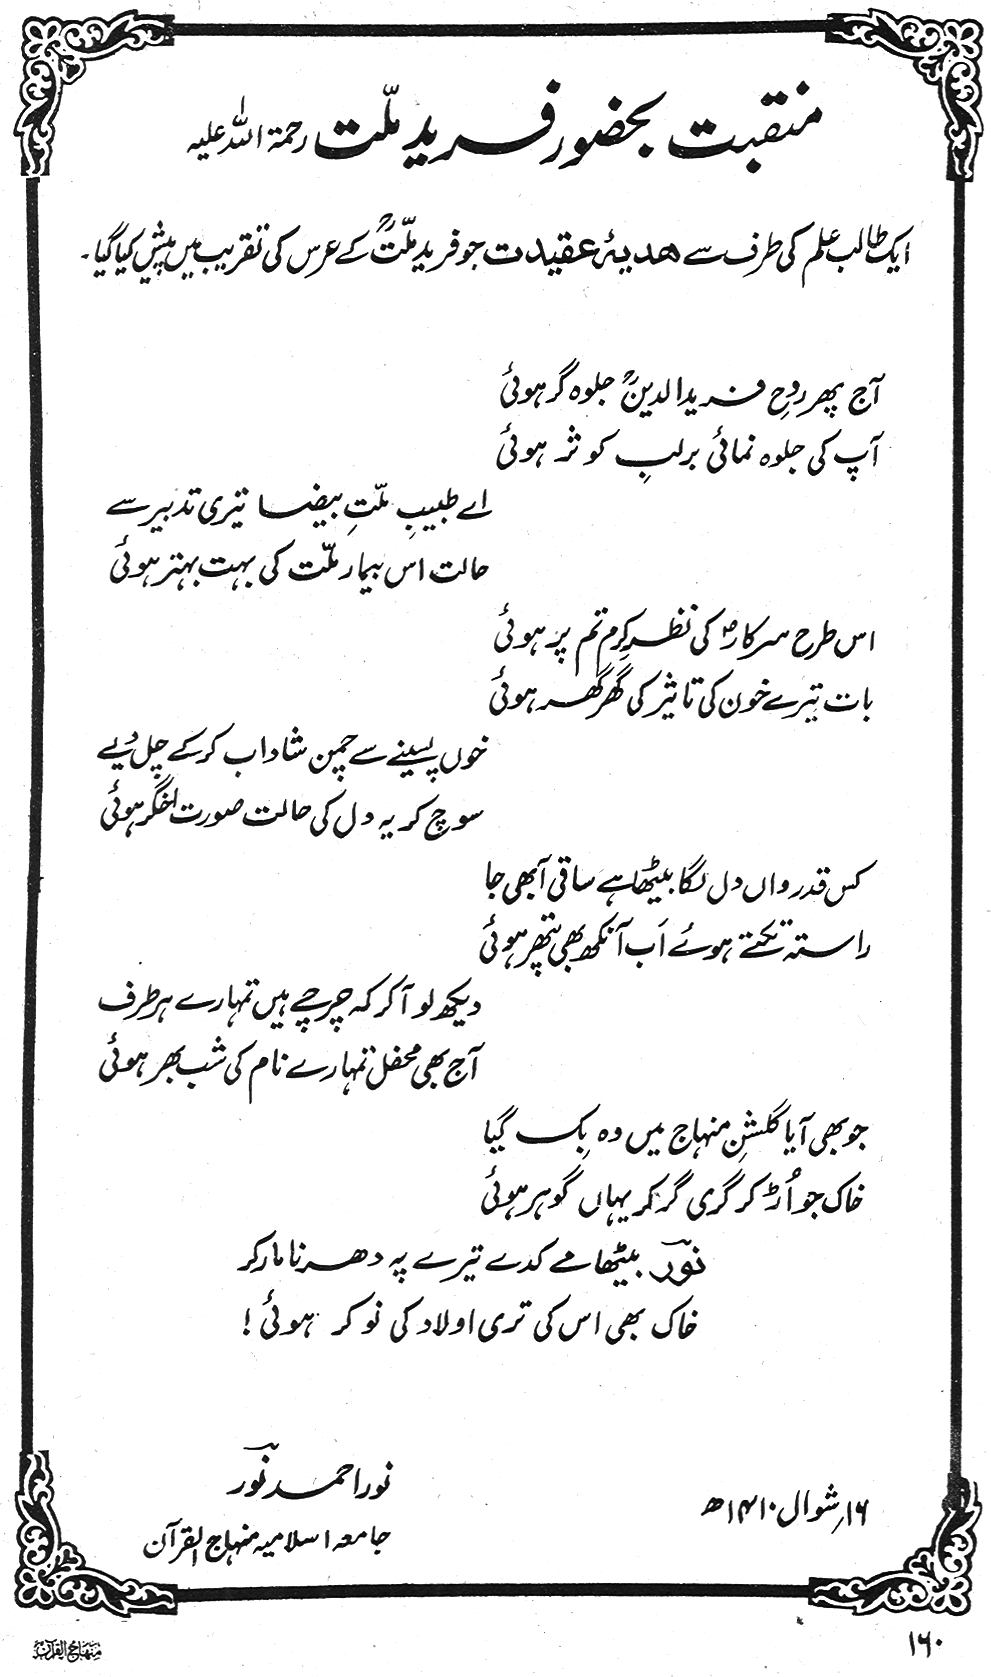 منقبت بحضور فرید ملّت رحمۃ اللہ علیہ
ایک طالب علم کی طرف سے ھدیۂ عقیدت جو فرید ملّتؒ کے عرس کی تقریب میں پیش کیا گیا۔
آج پھر روحِ فرید الدینؒ جلوہ گر ہوئی
آپ کی جلوہ نمائی بر لبِ کوثر ہوئی
اے طبیبِ ملّتِ بیضا تیری تدبیر سے
حالت اس بیمار ملّت کی بہت بہتر ہوئی
اس طرح سرکارؐ کی نظرِ کرم تم پر ہوئی
بات تیرے خون کی تاثیر کی گھر گھر ہوئی
خوں پسینے سے چمن شاداب کر کے چل دیے
سوچ کر یہ دل کی حالت صورت اخگر ہوئی
کس قدر واں دل لگا بیٹھا ہے ساقی آ بھی جا
راستہ تکتے ہوئے اَب آنکھ بھی پتھر ہوئی
دیکھ لو آ کر کہ چرچے ہیں تمہارے ہر طرف
آج بھی محفل تمہارے نام کی شب بھر ہوئی
جو بھی آیا گلشنِ منہاج میں وہ بِک گیا
خاک جو اُڑ کر گری گر کر یہاں گوہر ہوئی
نورؔ بیٹھا مے کدے تیرے پہ دھرنا مار کر
خاک بھی اس کی تری اولاد کی نوکر ہوئی!
نور احمد نورؔ
جامعہ اسلامیہ منہاج القرآن
۱۶؍ شوال ۱۴۱۰ھ
منہاج القرآن
۱۶۰